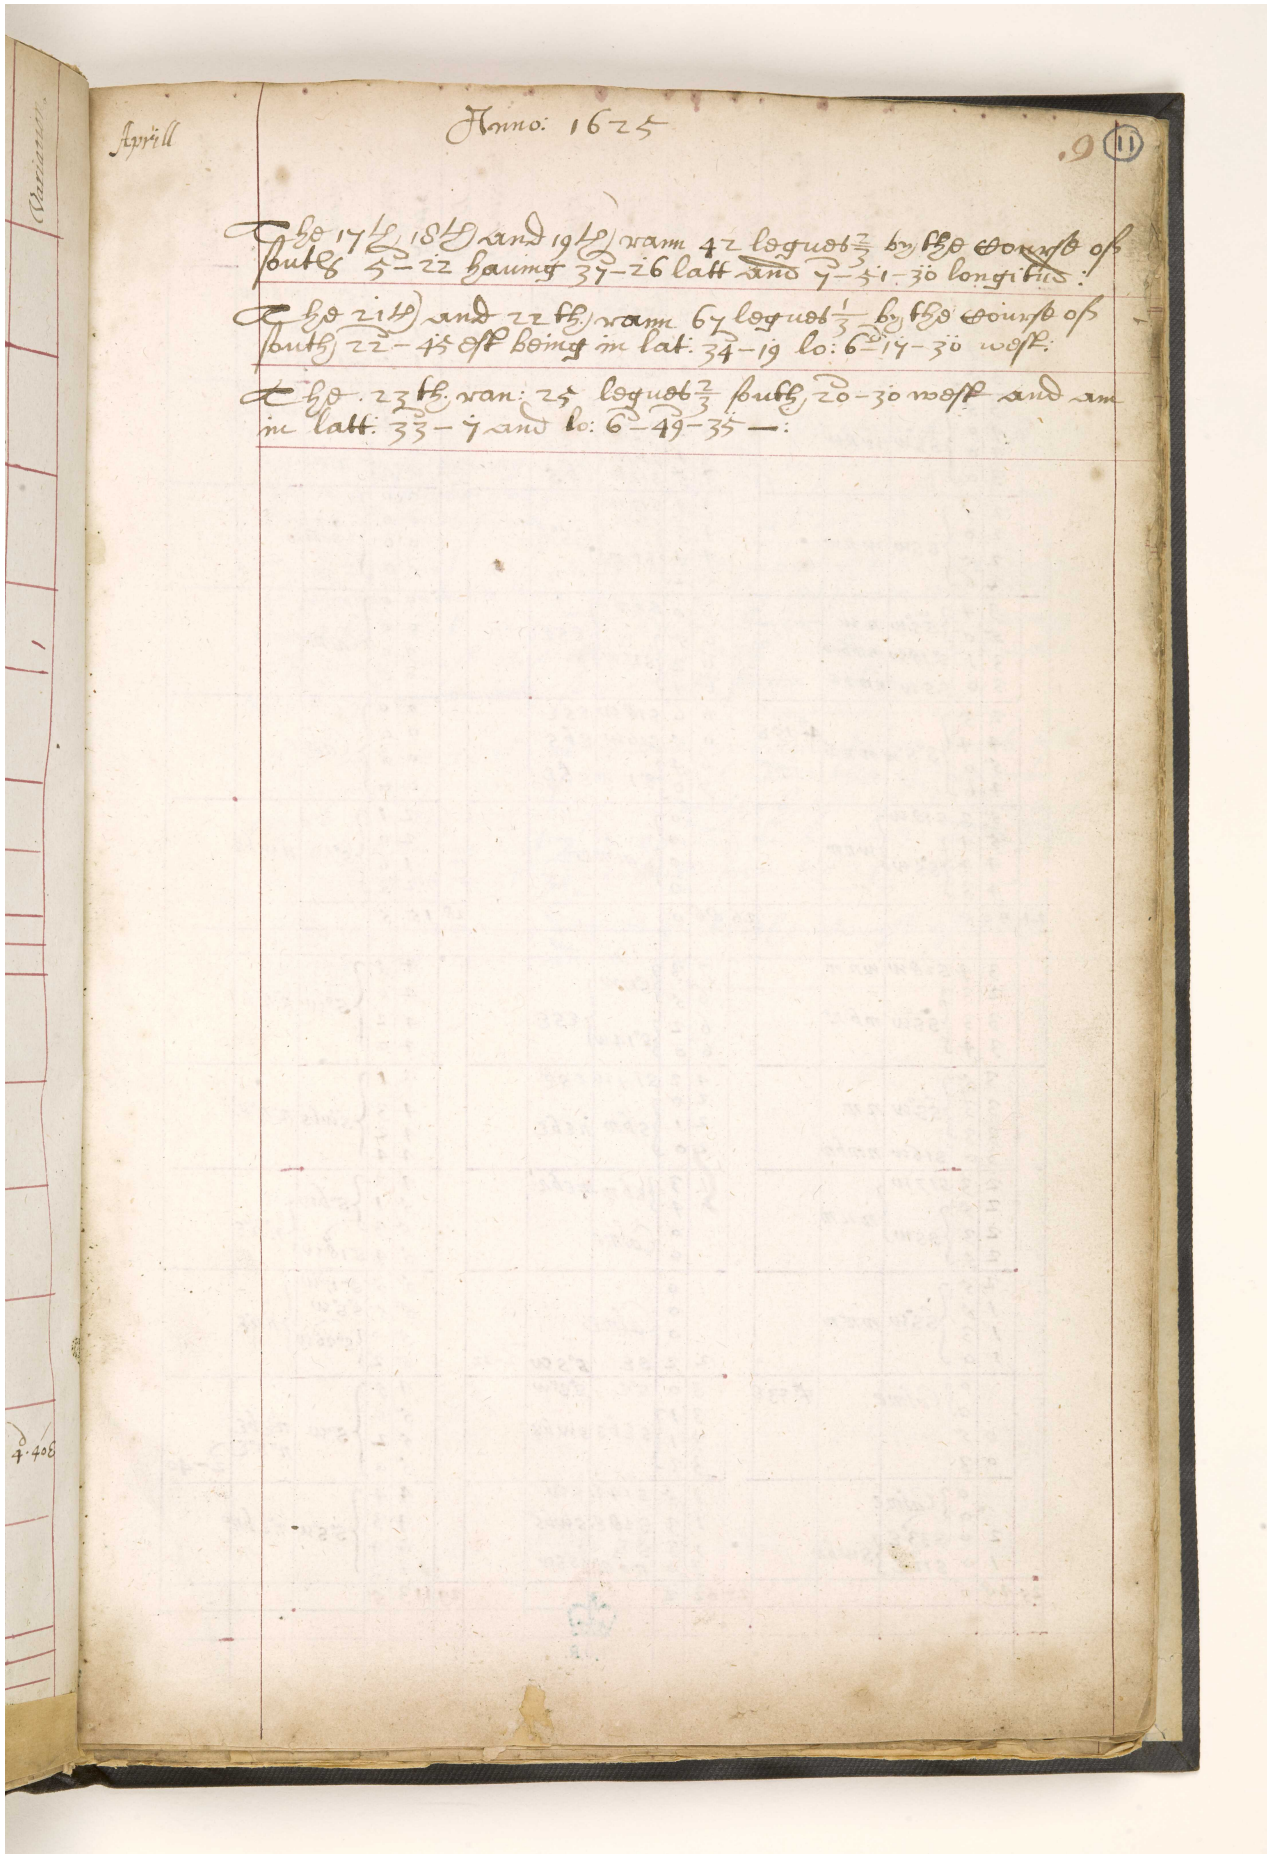 Variation
Aprill
Anno: 1625
.9 11
The 17th, 18th and 19th, rann 42 legues 2/3 by the Course of
south 5D-22 having 37D-26 latt and 7D-51-30 longitud:
The 21th and 22th, rann 67 legues 1/3 by the Course of
south, 22D-45 est being in lat: 34D-19 lo: 6D-17-30 west:
The 23th, ran: 25 legues 2/3 south, 20D-30 west and am
in latt: 33D-7 and lo: 6D-49-35 —: